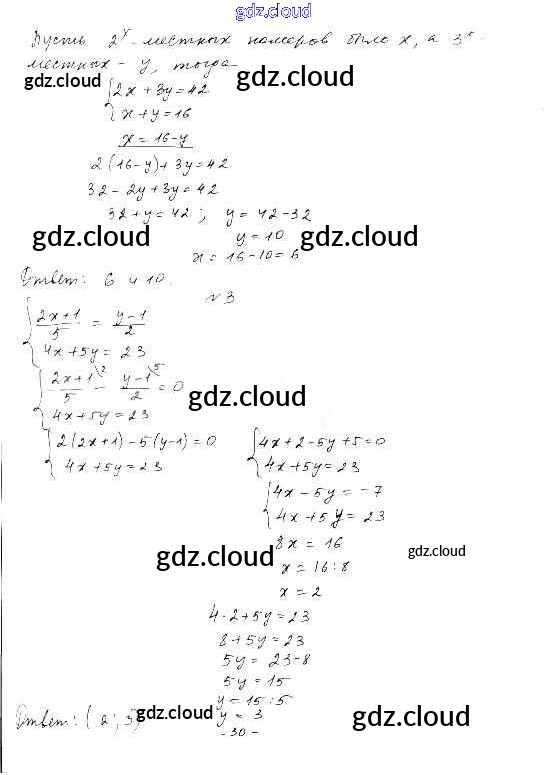 gdz.cloud
Пусть 2х-местных номеров было x, а 3х-
местных - y, тогда
gdz.cloud gdz.cloud
{2x + 3y = 42
x + y = 16
x = 16-y
2(16-y)+3y=42
32-2y+3y=42
32+y=42; y=42-32
gdz.cloud y=10 gdz.cloud
x = 16-10=6
Ответ: 6 и 10.
№3
{(2x+1)/5 = (y-1)/2
4x+5y=23
{(2x+1\2)/5 - (y-1\5)/2 = 0
gdz.cloud
4x+5y=23
{2(2x+1)-5(y-1)=0 {4x+2-5y+5=0
4x+5y=23 4x+5y=23
{4x-5y=-7
4x+5y=23
gdz.cloud 8x=16 gdz.cloud
x=16:8
x=2
4·2+5y=23
8+5y=23
5y=23-8
5y=15
y=15:5
Ответ: (2; 3) gdz.cloud y=3 gdz.cloud
-30-